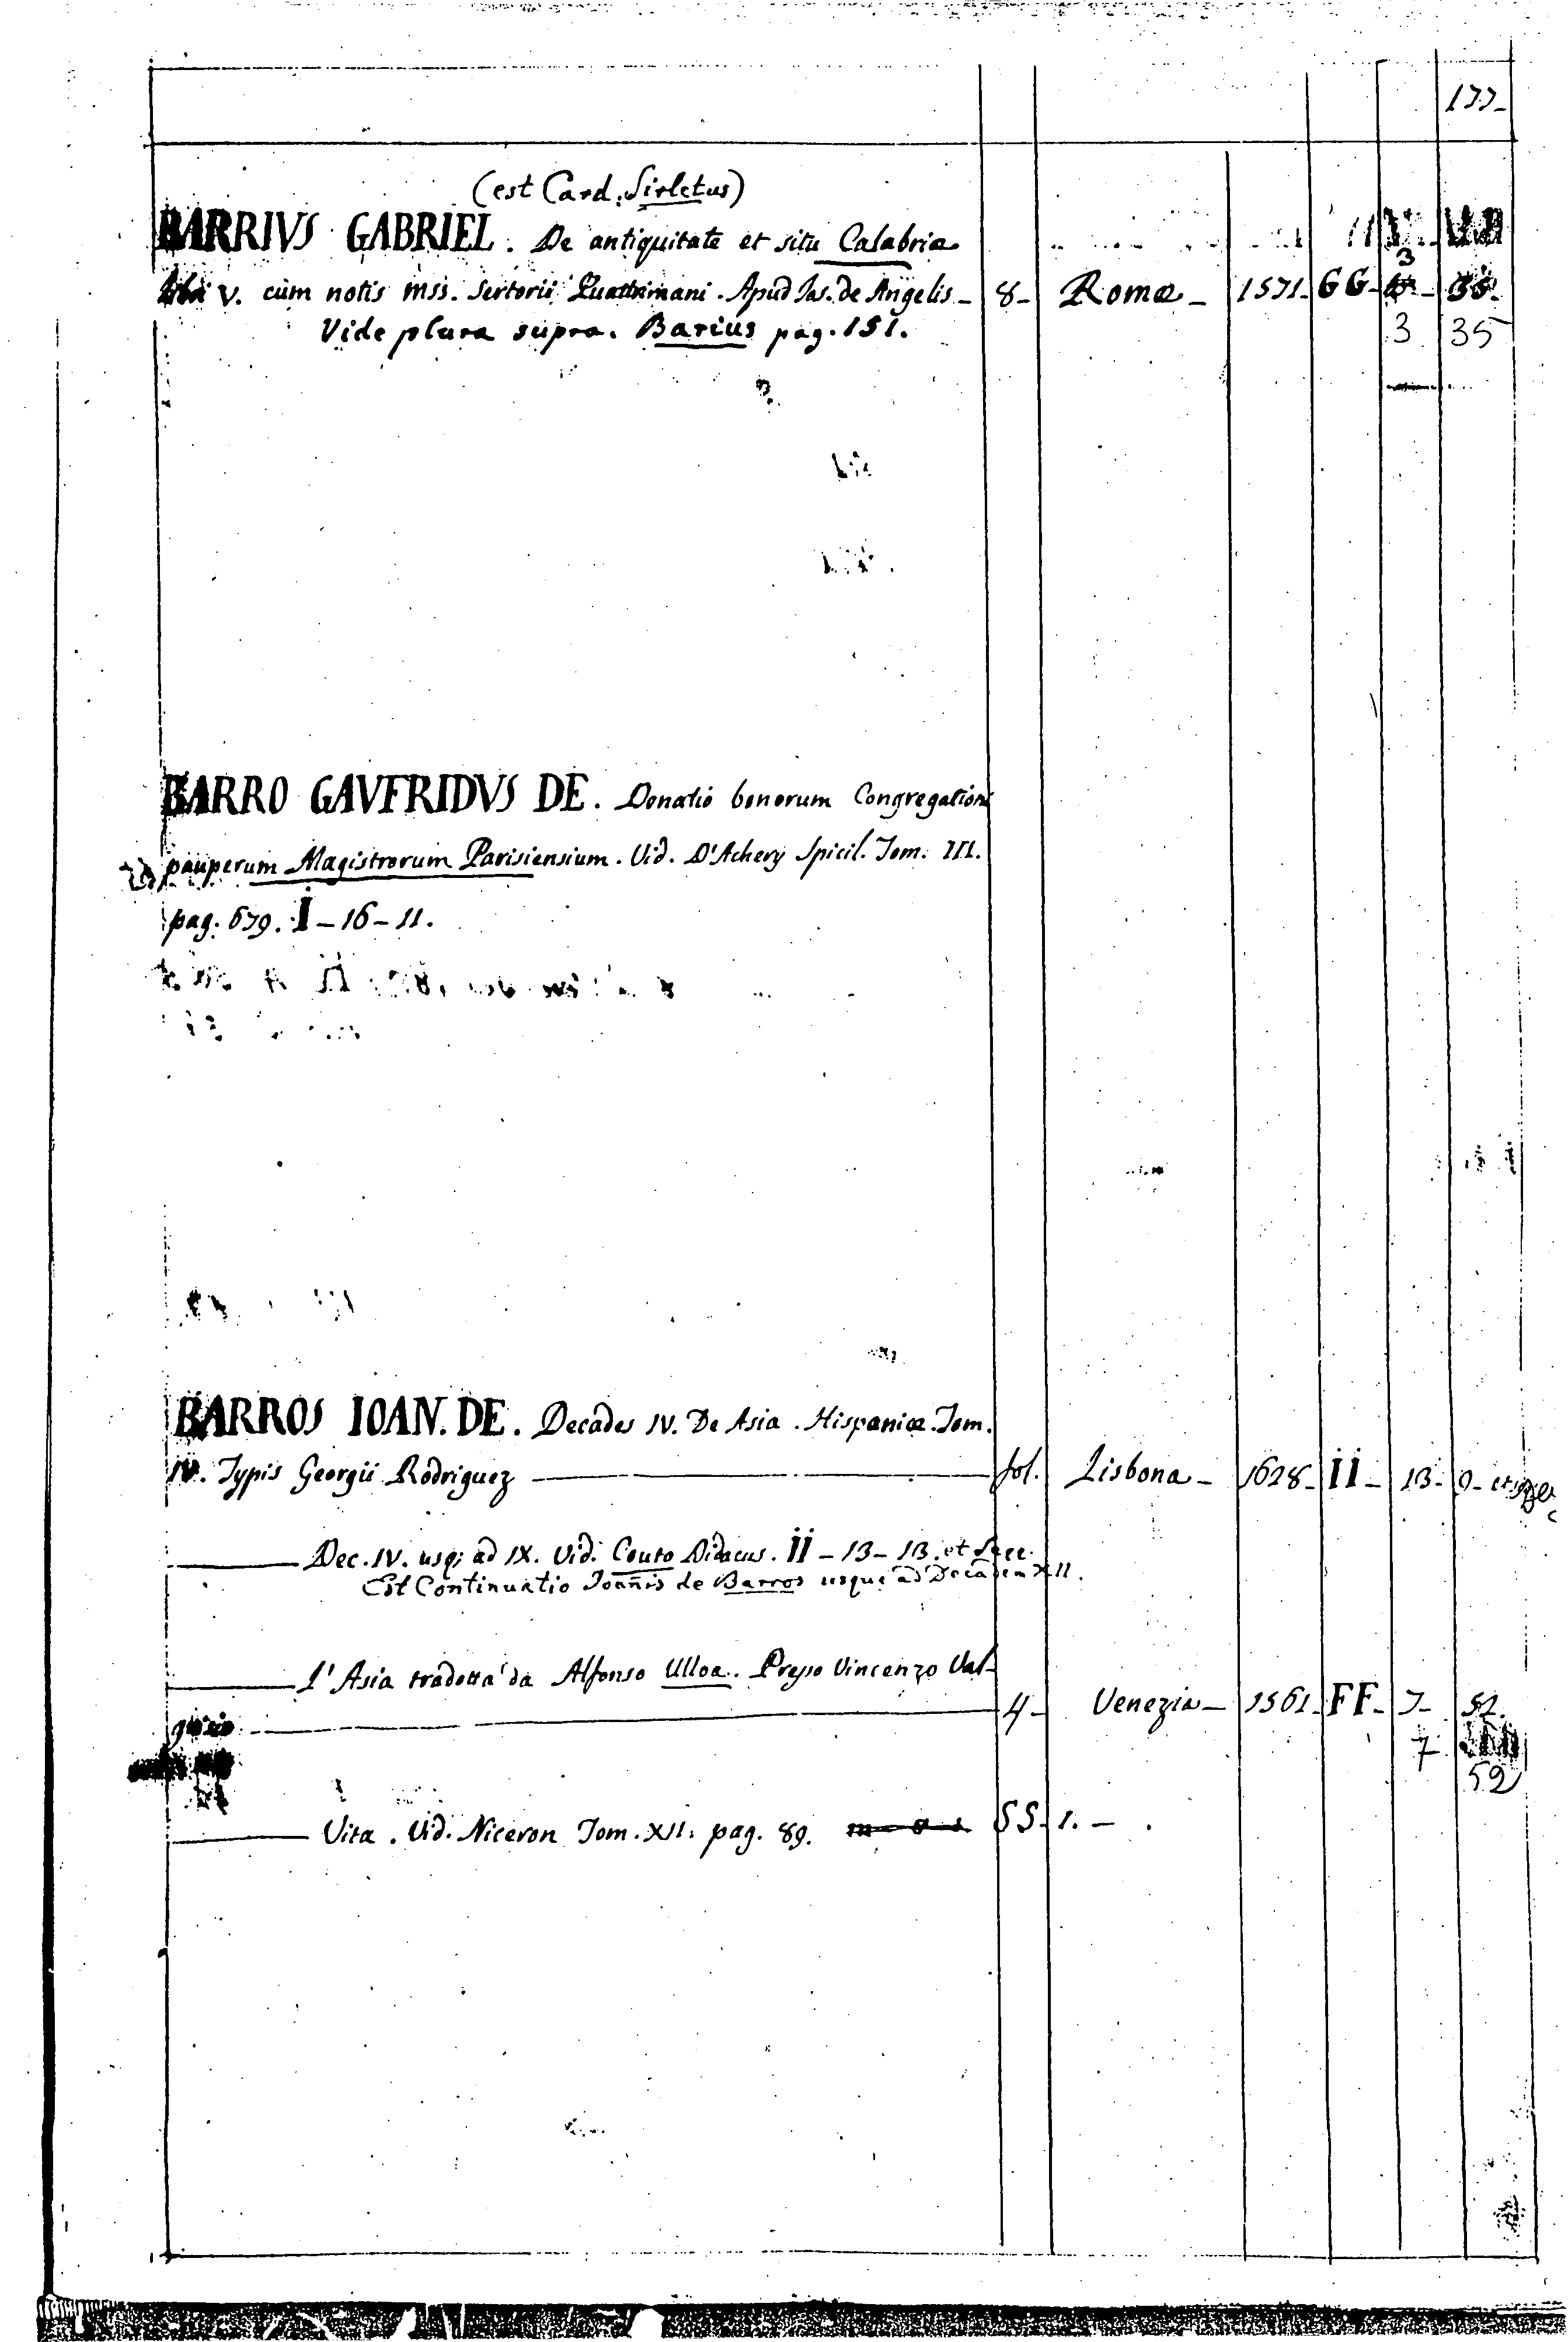 177-
(est Card. Sirletus)
BARRIVS GABRIEL. De antiquitate et situ Calabriæ
Libri V. cum notis mss. Sertorii Quattrimani. Apud Ios. de Angelis - 8- Romæ - 1571- GG- 3
Vide plura supra. Barius pag. 151. 3 35
BARRO GAVFRIDVS DE. Donatio bonorum Congregationi
pauperum Magistrorum Parisiensium. Vid. D'Achery Spicil. Tom. III.
pag. 679. I - 16 - 11.
BARROS IOAN. DE. Decades IV. De Asia. Hispanice. Tom.
IV. Typis Georgii Rodriguez fol. Lisbona - 1628- II - 13- 9-
Dec. IV. usq; ad IX. Vid. Couto Didacus. II - 13 - 13. et
Est Continuatio Joannis de Barros usque ad Decadem XII.
L'Asia tradotta da Alfonso Ulloa. Presso Vincenzo Val-
grisio 4- Venezia - 1561- FF- 7- 52.
7 52
Vita. Vid. Niceron Tom. XII. pag. 89. SS- 1. -